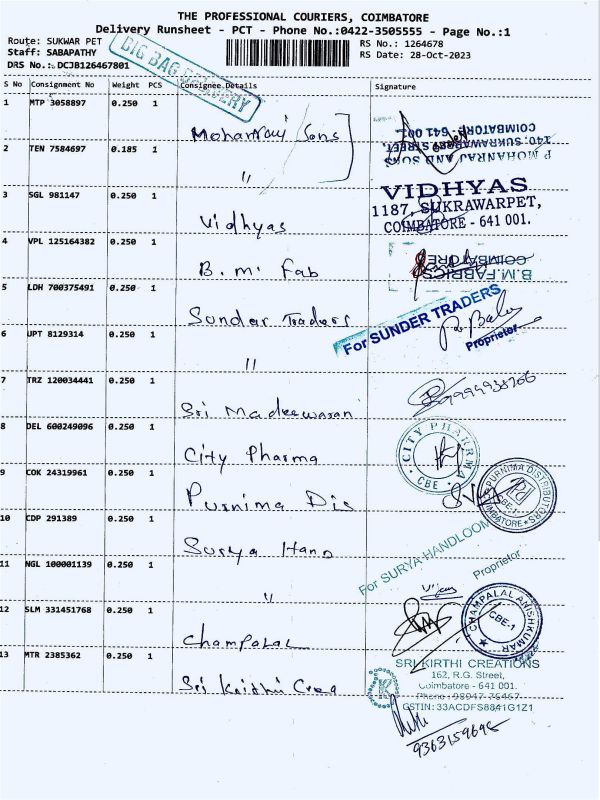 THE PROFESSIONAL COURIERS, COIMBATORE
Delivery Runsheet - PCT - Phone No.:0422-3505555 - Page No.:1
Route: SUKWAR PET
Staff: SABAPATHY
DRS No.: DCJB126467801
BIG BAG DELIVERY
RS No.: 1264678
RS Date: 28-Oct-2023
S No Consignment No Weight PCS Consignee Details Signature
1 MTP 3058897 0.250 1 Mohanraj Sons
P MOHANRAJ AND SONS
140, SUKRAWARPET STREET,
COIMBATORE - 641 001.
2 TEN 7584697 0.185 1 "
3 SGL 981147 0.250 1 Vidhyas
VIDHYAS
1187, SUKRAWARPET,
COIMBATORE - 641 001.
4 VPL 125164382 0.250 1 B.M. Fab
B.M.FABRICS
COIMBATORE
5 LDH 700375491 0.250 1 Sundar Traders
For SUNDER TRADERS
Proprietor
6 UPT 8129314 0.250 1 "
7 TRZ 120034441 0.250 1 Sri
8 DEL 600249096 0.250 1 City Pharma
CITY PHARRMA
CBE
9 COK 24319961 0.250 1 Purnima Dis
PURNIMA DISTRIBUTORS
CBE-1
COIMBATORE
10 CDP 291389 0.250 1 Surya Hand
For SURYA HANDLOOM
Proprietor
11 NGL 100001139 0.250 1 "
12 SLM 331451768 0.250 1 Champalal
CHAMPALAL ANISHKUMAR
CBE-1
13 MTR 2385362 0.250 1 Sri Crea
SRI KIRTHI CREATIONS
162, R.G. Street,
Coimbatore - 641 001.
Phone : 98947 76467
GSTIN: 33ACDFS8841G1Z1
9363159698